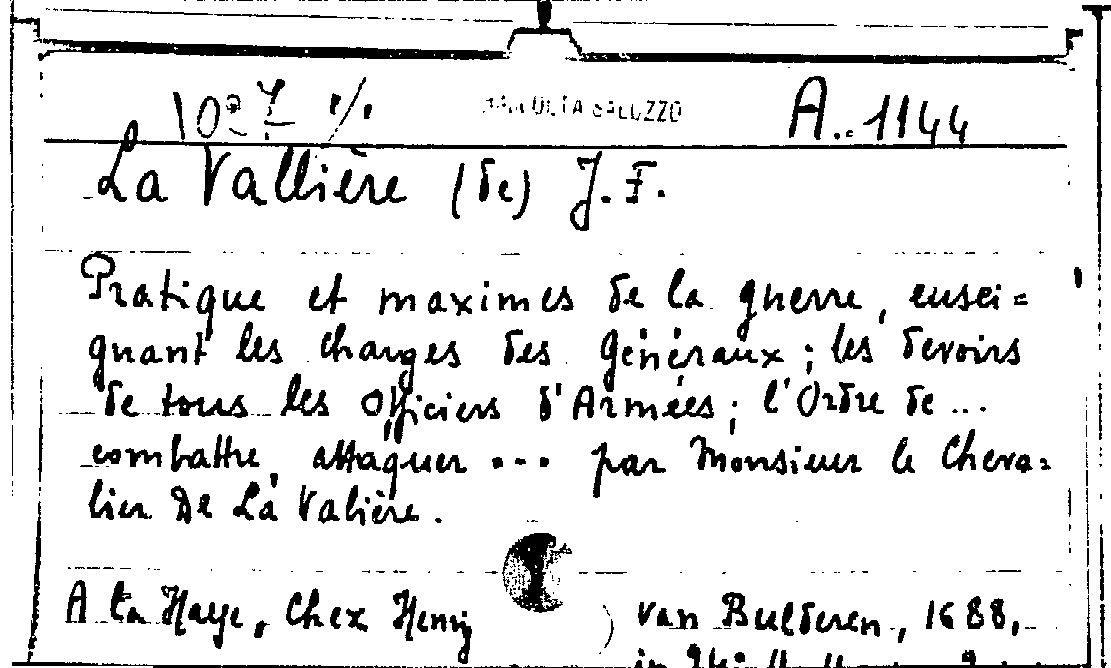 RACCOLTA SALUZZO A. 1144
La Vallière (de) J. F.
Pratique et maximes de la guerre, ensei=
gnant les charges des Généraux ; les devoirs
de tous les Officiers d'Armées ; l'Ordre de ...
combattre, attaquer ... par Monsieur le Cheva=
lier De La Valière.
A la Haye, Chez Henry van Bulderen, 1688,